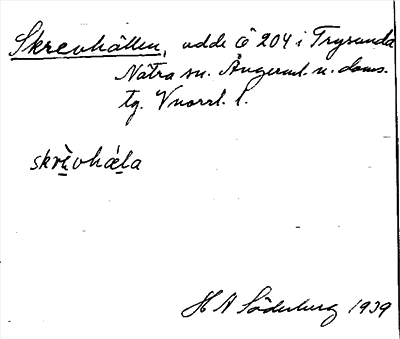 Skrevhällen, udde Ö 204 i Trysunda
Nätra sn. Ångerml. n. doms.
tg. Vnorrl. l.
skrèvhǽla
H A Söderberg 1939